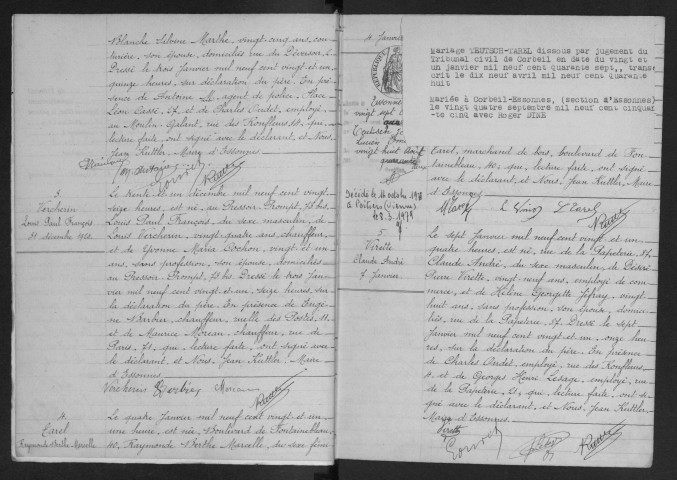 Blanche Sylvine Marthe, vingt-cinq ans, cou-
turière, son épouse, domiciliés rue du Déversoir, 2.
Dressé le trois Janvier mil neuf cent vingt et un,
quinze heures, sur déclaration du père. En pré-
sence de Antoine agent de police, Place
Léon Cassé, 27, et de Charles Oudet, employé
au Moulin-Galant, rue des Ronfleurs 34, qui,
lecture faite, ont signé avec le déclarant, et Nous,
Jean Küttler, Maire d'Essonnes.
3.
Vercherin
Louis Paul François
31 décembre 1920.
Le trente et un décembre mil neuf cent vingt,
seize heures, est né, au Pressoir-Prompt, 73 bis,
Louis Paul François, du sexe masculin, de
Louis Vercherin, vingt quatre ans, chauffeur,
et de Yvonne Maria Cochon, vingt et un
ans, sans profession, son épouse, domiciliés
au Pressoir-Prompt, 73 bis. Dressé le trois Jan-
vier mil neuf cent vingt et un, seize heures, sur
la déclaration du père. En présence de Eugè-
ne Barbier, chauffeur, ruelle des Postes, 11,
et de Maurice Moreau, chauffeur, rue de
Paris, 71, qui, lecture faite, ont signé avec
le déclarant, et Nous, Jean Küttler, Maire
d'Essonnes.
Vercherin Barbier Moreau
4.
Tarel
Raymonde Berthe Marcelle
Le quatre Janvier mil neuf cent vingt et un,
une heure, est née, Boulevard de Fontainebleau,
40, Raymonde Berthe Marcelle, du sexe fémi-
4 Janvier
Mariage TRUTSCH-TAREL dissous par jugement du
Tribunal civil de Corbeil en date du vingt et
un janvier mil neuf cent quarante sept,, trans
crit le dix neuf avril mil neuf cent quarante
huit
Mariée à Corbeil-Essonnes, (section d'Essonnes)
le vingtquatre septembre mil neuf cent cinquan
-te cinq avec Roger DINE
Essonnes
vingt sept
vingt huit Août
Décédée le 16 octobre 1978
à Poitiers (Vienne)
le 2.3.1979
Tarel, marchand de bois, boulevard de Fon-
tainebleau, 40, qui, lecture faite, ont signé avec
le déclarant, et Nous, Jean Küttler, Maire
d'Essonnes.
5
Virette
Claude André
7 Janvier
Le sept Janvier mil neuf cent vingt et un,
quatre heures, est né, rue de la Papeterie, 57,
Claude André, du sexe masculin, de Désiré
Pierre Virette, vingt-neuf ans, employé de com-
merce, et de Hélène Georgette Jefray, vingt-
huit ans, sans profession, son épouse, domici-
liés, rue de la Papeterie, 57. Dressé le sept
Janvier mil neuf cent vingt et un, onze heu-
res, sur la déclaration du père. En présence
de Charles Oudet, employé, rue des Ronfleurs,
34, et de Georges Henri Lesage, employé, rue
de la Papeterie, 21, qui, lecture faite, ont si-
gné avec le déclarant, et Nous, Jean Küttler,
Maire d'Essonnes.
Virette